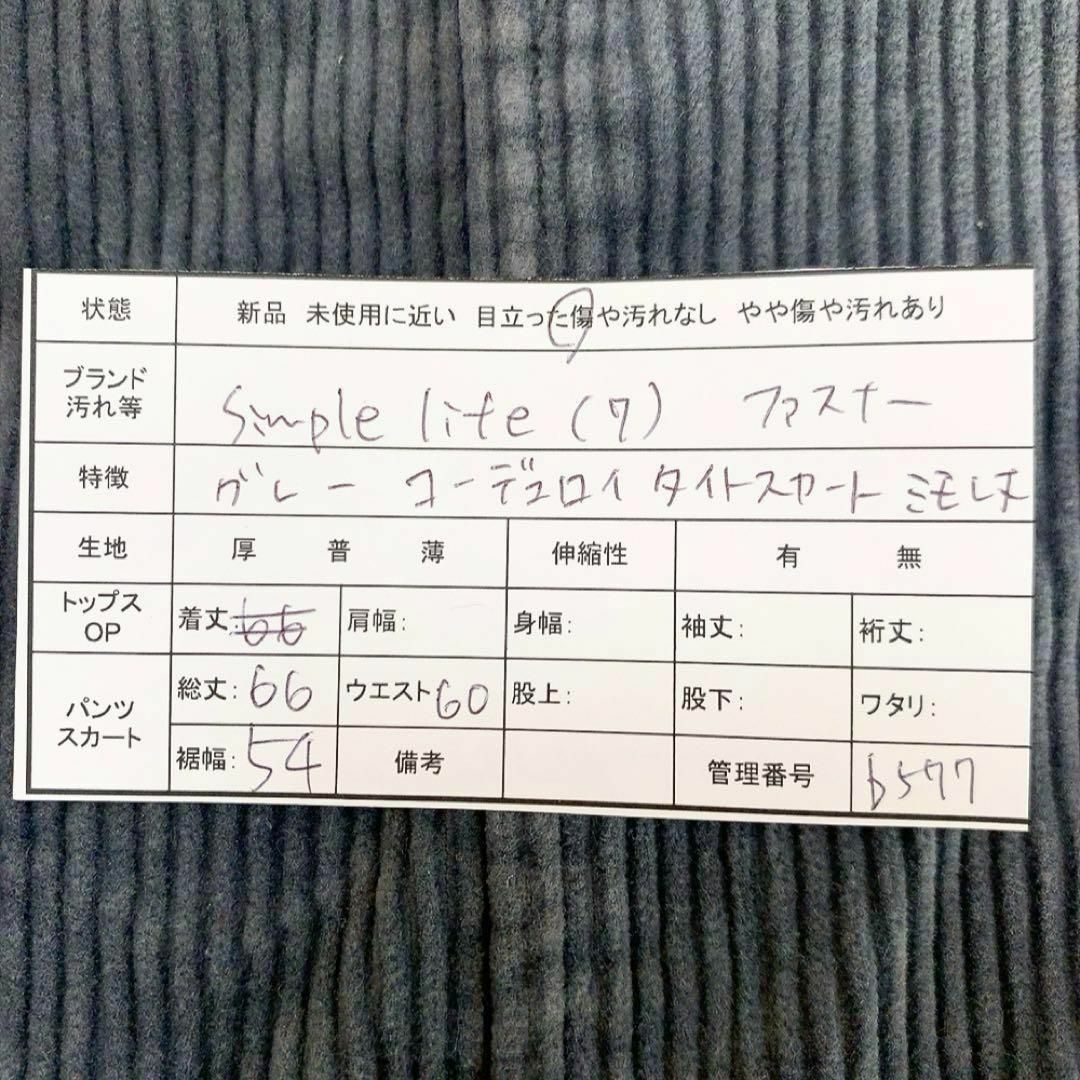 状態 新品 未使用に近い 目立った傷や汚れなし やや傷や汚れあり
ブランド
汚れ等 Simple life (7) ファスナー
特徴 グレー コーデュロイ タイトスカート ミモレ丈
生地 厚 普 薄 伸縮性 有 無
トップス
OP 着丈:66 肩幅: 身幅: 袖丈: 裄丈:
パンツ
スカート 総丈:66 ウエスト60 股上: 股下: ワタリ:
裾幅:54 備考 管理番号 b577